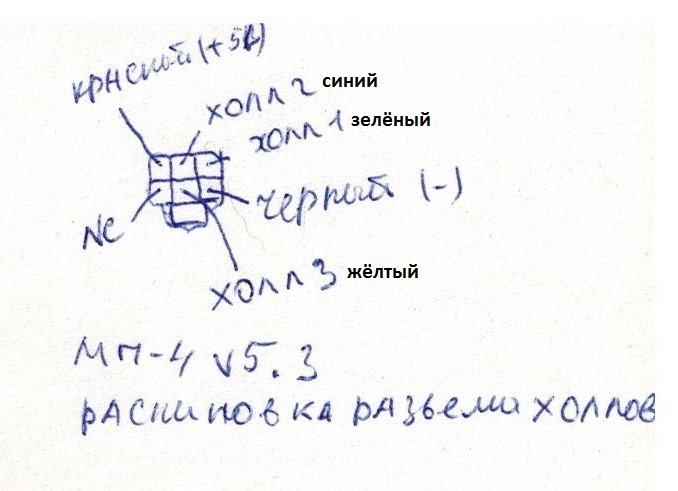 красный (+5В)
холл 2 синий
холл 1 зелёный
черный (-)
NC
холл 3 жёлтый
МП-4 v5.3
распиновка разьема холлов